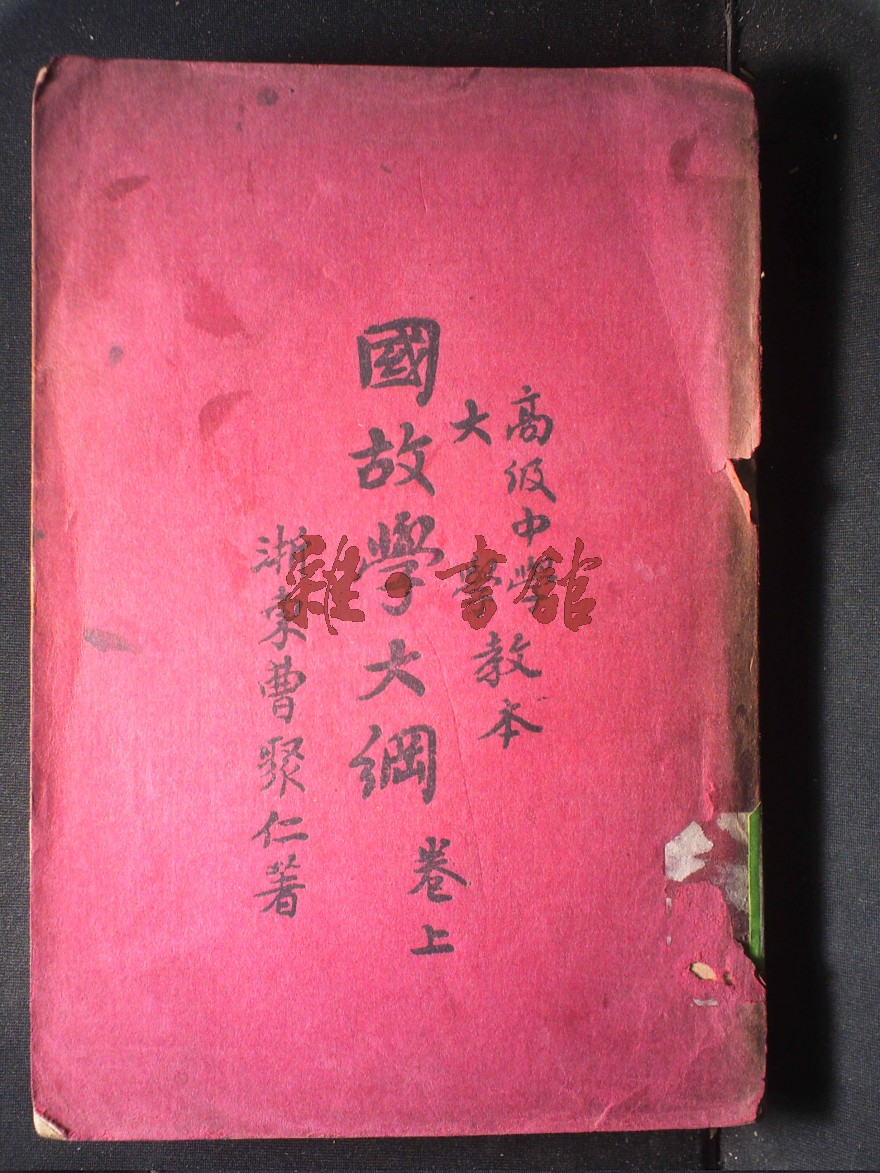 高級中學
大學
教本
國故學大綱
卷上
浙東曹聚仁著
雜·書館